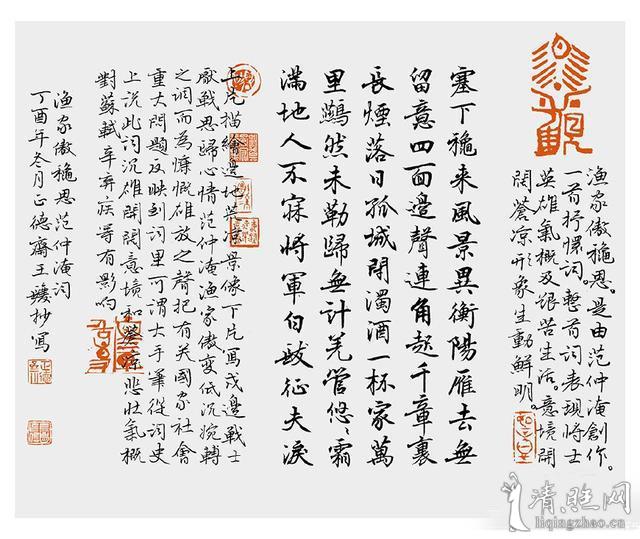 渔家傲穐思。是由范仲淹創作。
一首抒懷词。整首词表現将士
英雄氣概及艰苦生活。意境開
阔蒼凉形象生動鮮明。
塞下穐来風景異衡陽雁去無
留意四面邊聲連角起千章裏
長煙落日孤城閉濁酒一杯家萬
里然未勒歸無計羌管悠悠霜
满地人不寐將軍白髮征夫淚
上片描繪邊地荒凉景像下片寫戍邊戰士
厭戰思歸心情范仲淹渔家傲变低沉婉轉
之调而為慷慨雄放之聲把有关國家社會
重大問题反映到词里可謂大手筆從词史
上说此词沉雄開阔意境和蒼凉悲壮氣概
對蘇軾辛弃疾等有影响
渔家傲穐思范仲淹词
丁酉年冬月正德齋王抄寫
清照网
liqingzhao.cn